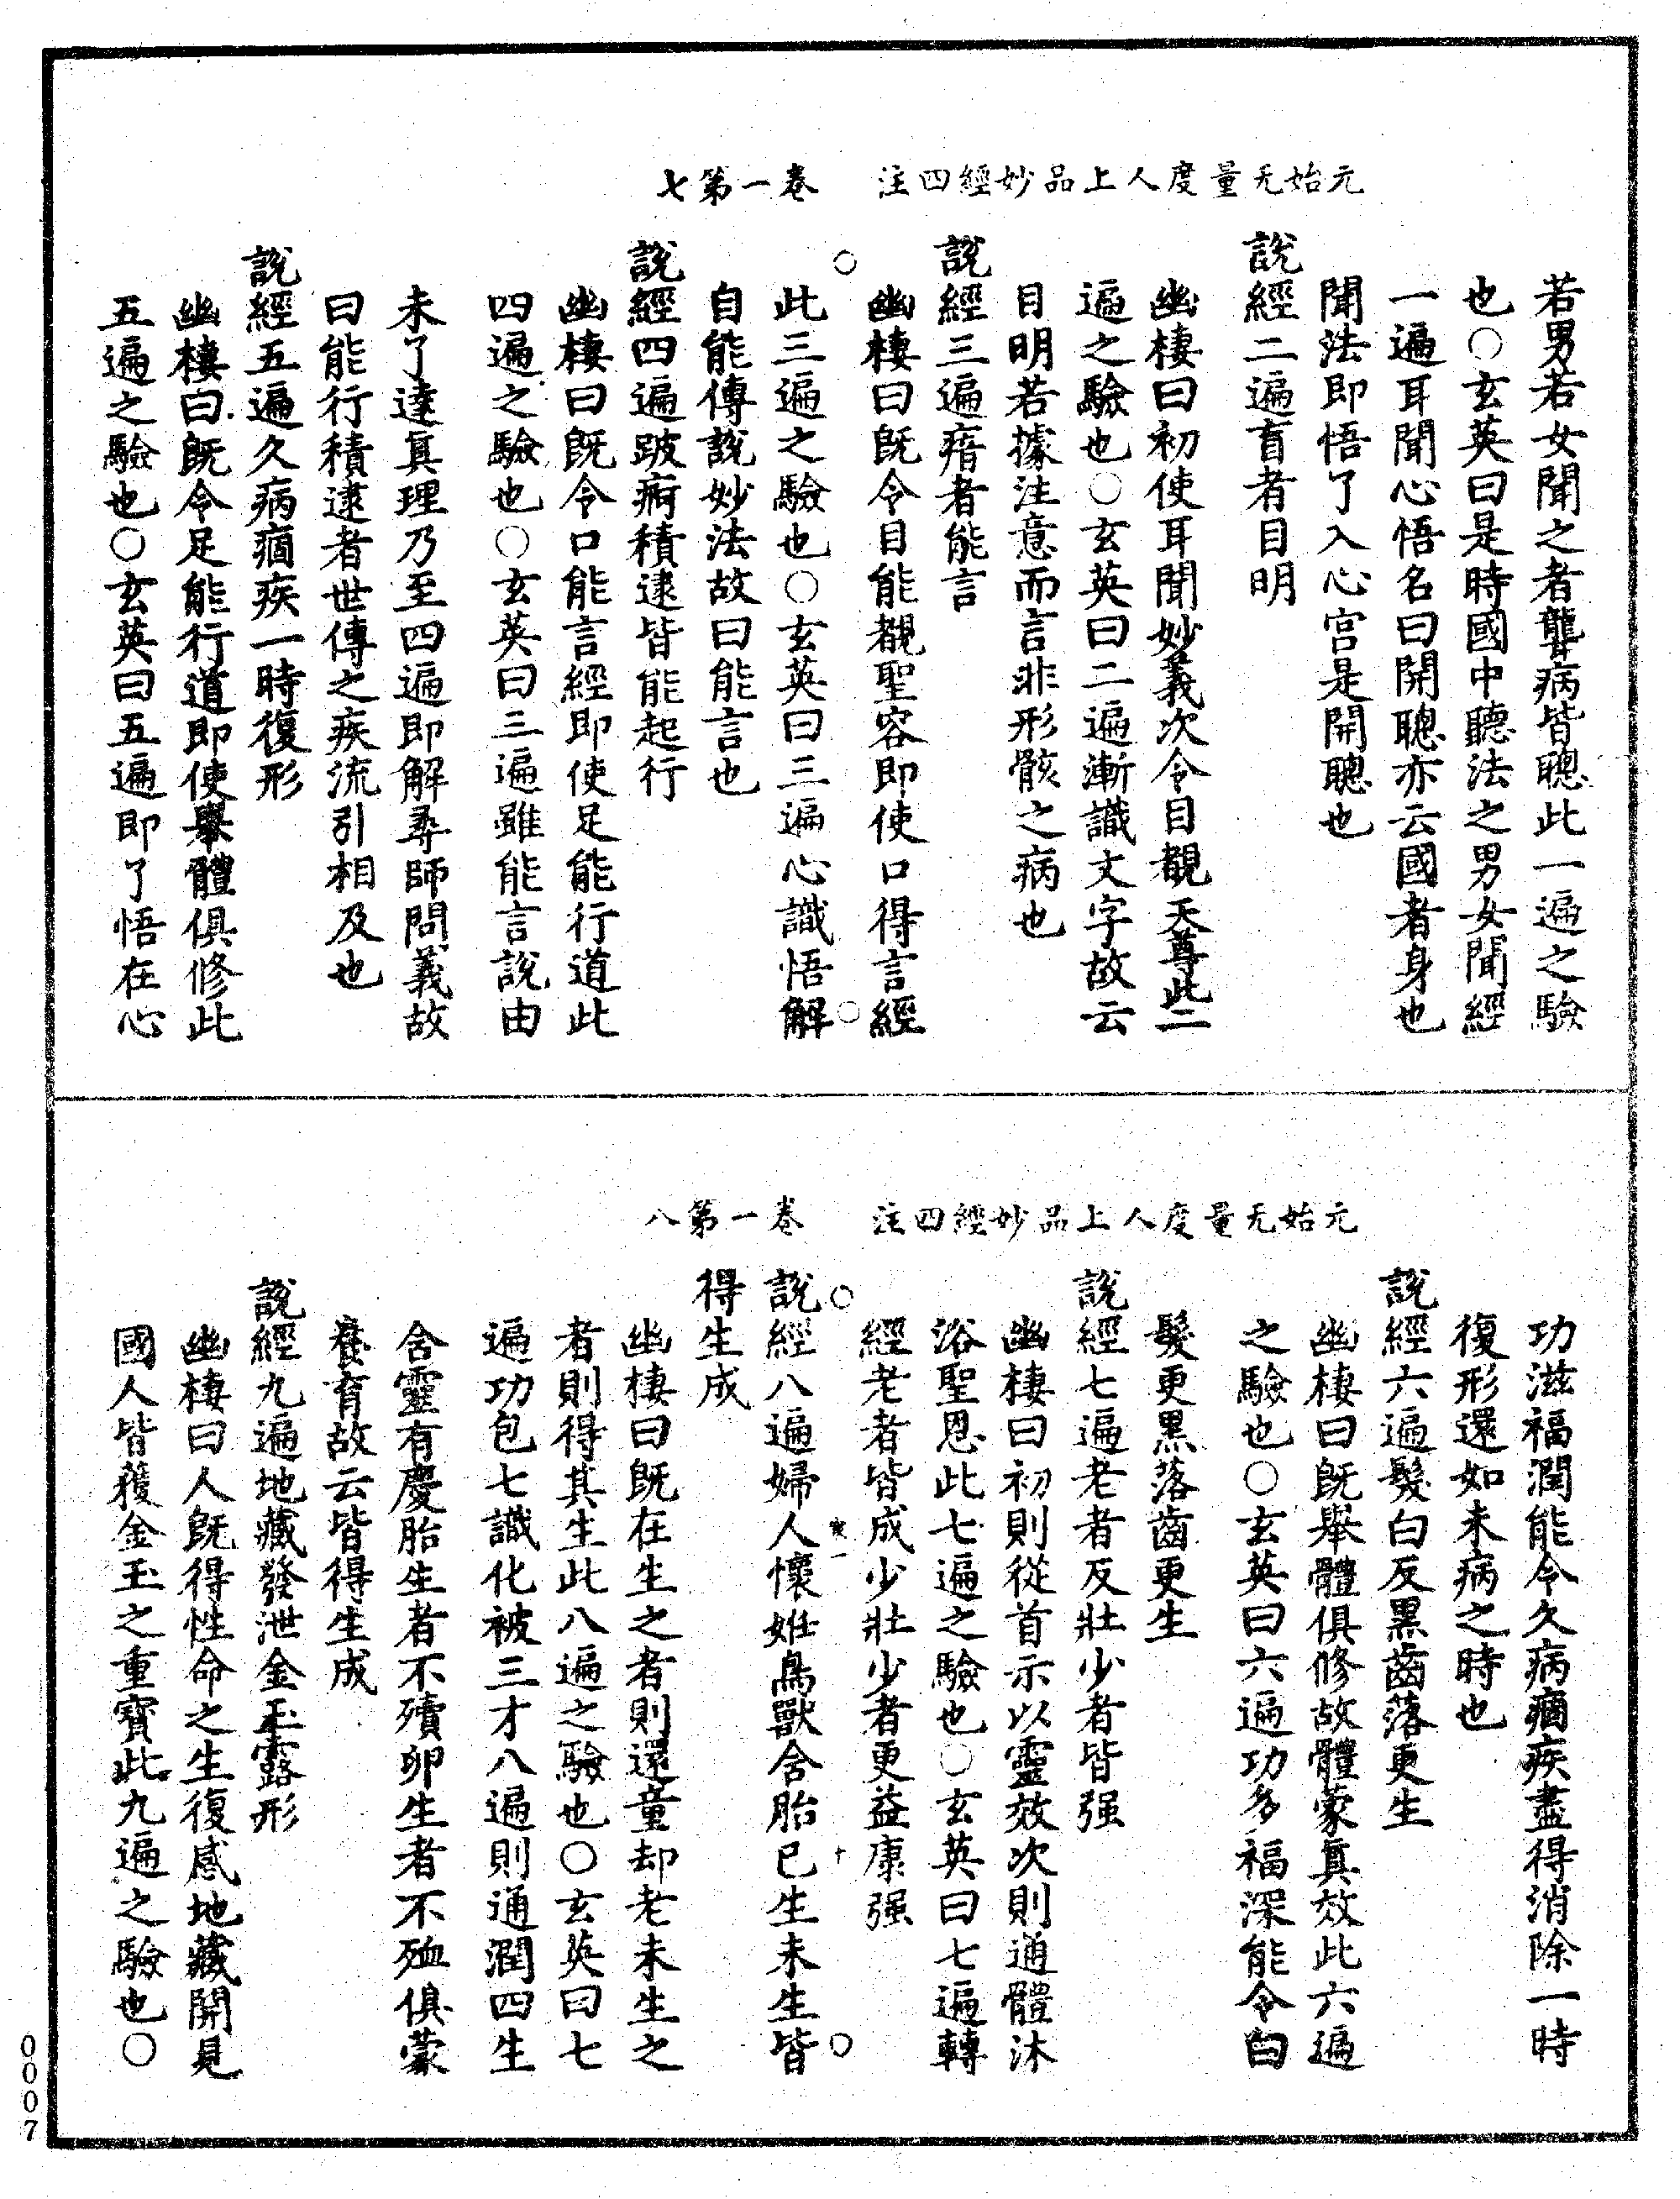 元始无量度人上品妙經四注　卷一第七
若男若女聞之者聾病皆聰此一遍之驗
也○玄英曰是時國中聽法之男女聞經
一遍耳聞心悟名曰開聰亦云國者身也
聞法即悟了入心宮是開聰也
說經二遍盲者目明
幽棲曰初使耳聞妙義次令目覩天尊此二
遍之驗也○玄英曰二遍漸識文字故云
目明若據注意而言非形骸之病也
說經三遍瘖者能言
幽棲曰既令目能覩聖容即使口得言經
此三遍之驗也○玄英曰三遍心識悟解
自能傳說妙法故曰能言也
說經四遍跛痾積逮皆能起行
幽棲曰既令口能言經即使足能行道此
四遍之驗也○玄英曰三遍雖能言說由
未了達真理乃至四遍即解尋師問義故
曰能行積逮者世傳之疾流引相及也
說經五遍久病痼疾一時復形
幽棲曰既令足能行道即使舉體俱修此
五遍之驗也○玄英曰五遍即了悟在心
元始无量度人上品妙經四注　卷一第八
功滋福潤能令久病痼疾盡得消除一時
復形還如未病之時也
說經六遍髮白反黑齒落更生
幽棲曰既舉體俱修故體蒙真效此六遍
之驗也○玄英曰六遍功多福深能令白
髮更黑落齒更生
說經七遍老者反壯少者皆强
幽棲曰初則從首示以靈效次則通體沐
浴聖恩此七遍之驗也○玄英曰七遍轉
經老者皆成少壯少者更益康强
說經八遍婦人懷妊鳥獸含胎已生未生皆
得生成
幽棲曰既在生之者則還童却老未生之
者則得其生此八遍之驗也○玄英曰七
遍功包七識化被三才八遍則通潤四生
含靈有慶胎生者不殰卵生者不殈俱蒙
養育故云皆得生成
說經九遍地藏發泄金玉露形
幽棲曰人既得性命之生復感地藏開見
國人皆獲金玉之重寶此九遍之驗也○
0007